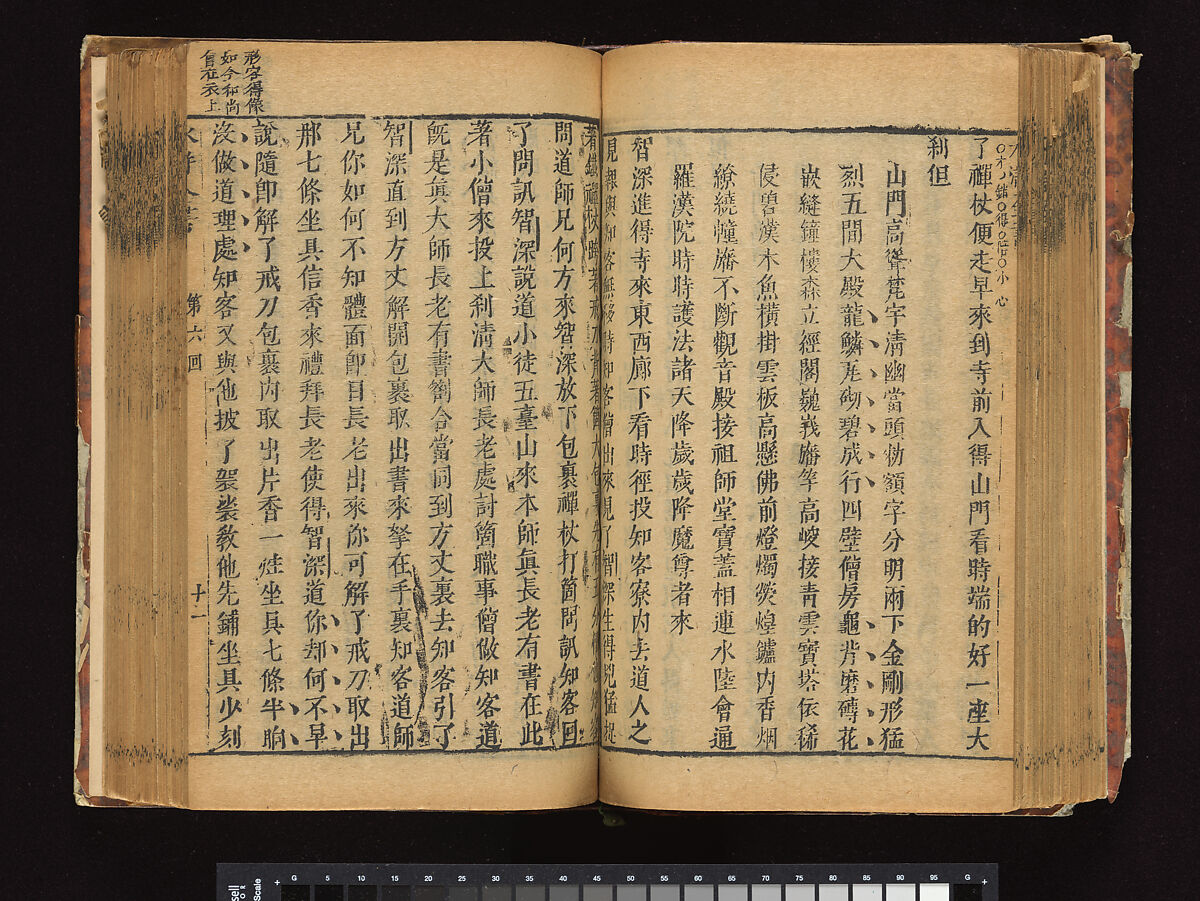 了禪杖便走早來到寺前入得山門看時端的好一座大
剎但
山門高聳梵宇清幽當頭勑額字分明兩下金剛形猛
烈五間大殿龍鱗瓦砌碧成行四壁僧房龜背磨磚花
嵌縫鐘樓森立經閣巍峩旛竿高峻接青雲寶塔依稀
侵碧漢木魚橫掛雲板高懸佛前燈燭熒煌鑪內香烟
繚繞幢旛不斷觀音殿接祖師堂寶蓋相連水陸會通
羅漢院時時護法諸天降歲歲降魔尊者來
智深進得寺來東西廊下看時徑投知客寮內去道人之
見報與知客無移時知客僧出來見了智深生得兇猛提
著鐵禪杖跨著戒刀背著
問道師兄何方來智深放下包裹禪杖打箇問訊知客回
了問訊智深說道小徒五臺山來本師眞長老有書在此
著小僧來投上剎清大師長老處討箇職事僧做知客道
旣是眞大師長老有書劄合當同到方丈裏去知客引了
智深直到方丈解開包裹取出書來拏在手裏知客道師
兄你如何不知體面卽目長老出來你可解了戒刀取出
那七條坐具信香來禮拜長老使得智深道你却何不早
說隨卽解了戒刀包裹內取出片香一炷坐具七條半晌
沒做道理處知客又與他披了袈裟教他先鋪坐具少刻
形容得像
如今和尚
會在衣上
第六回
十二